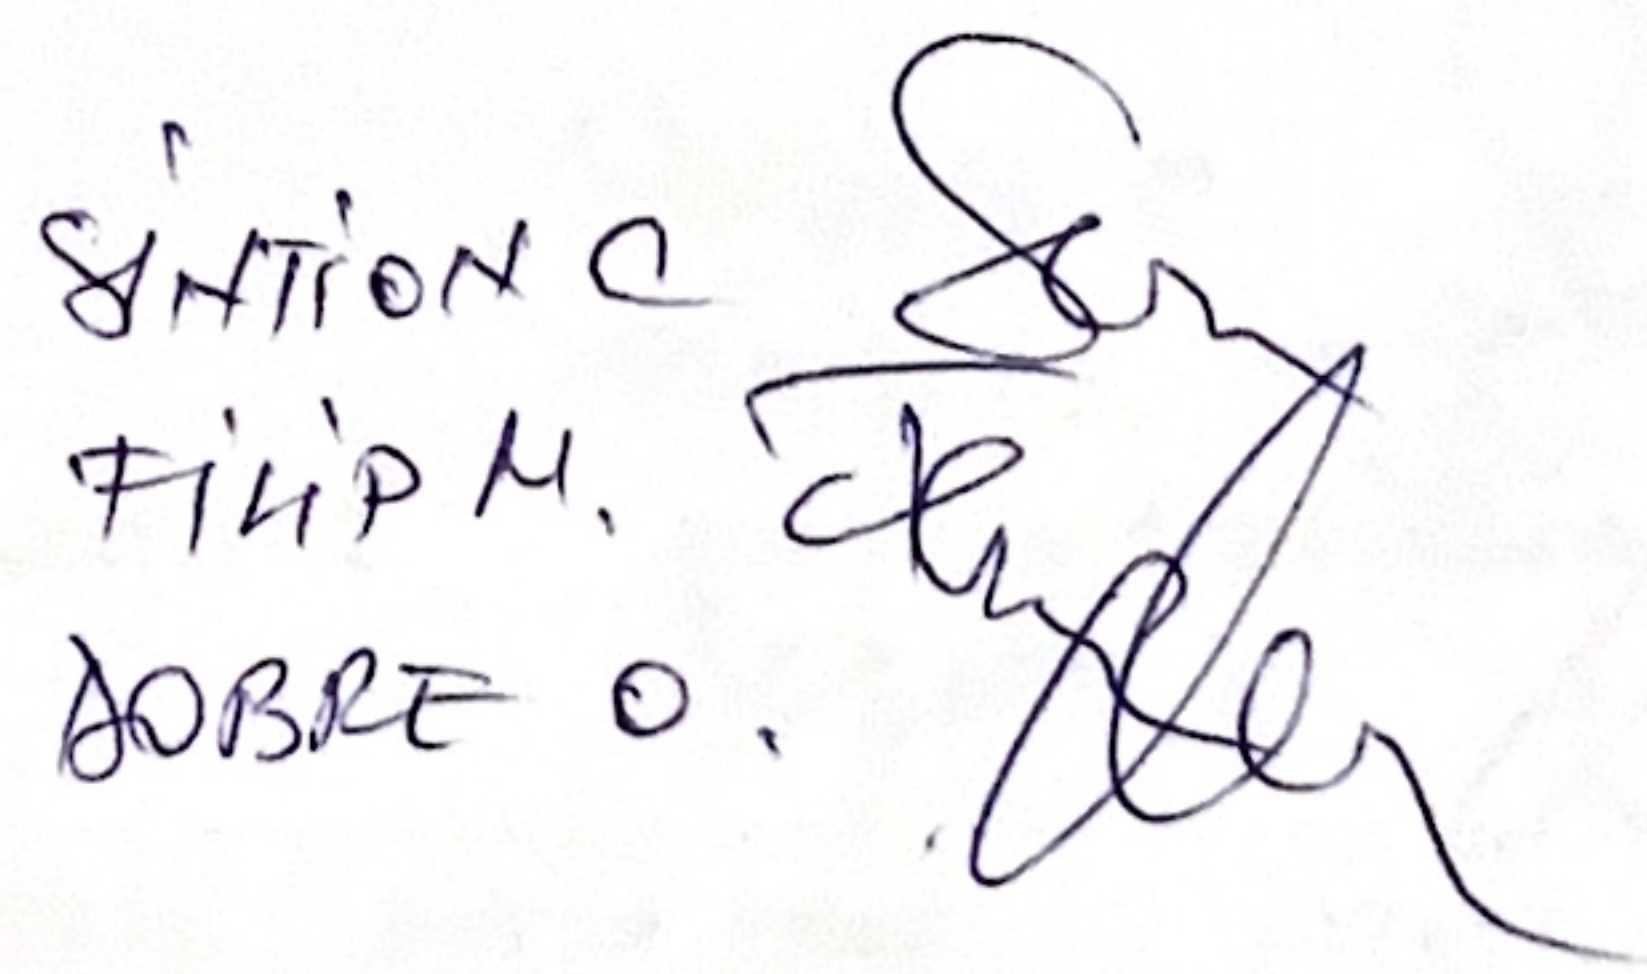 SÎNTION C
FILIP M.
DOBRE O.